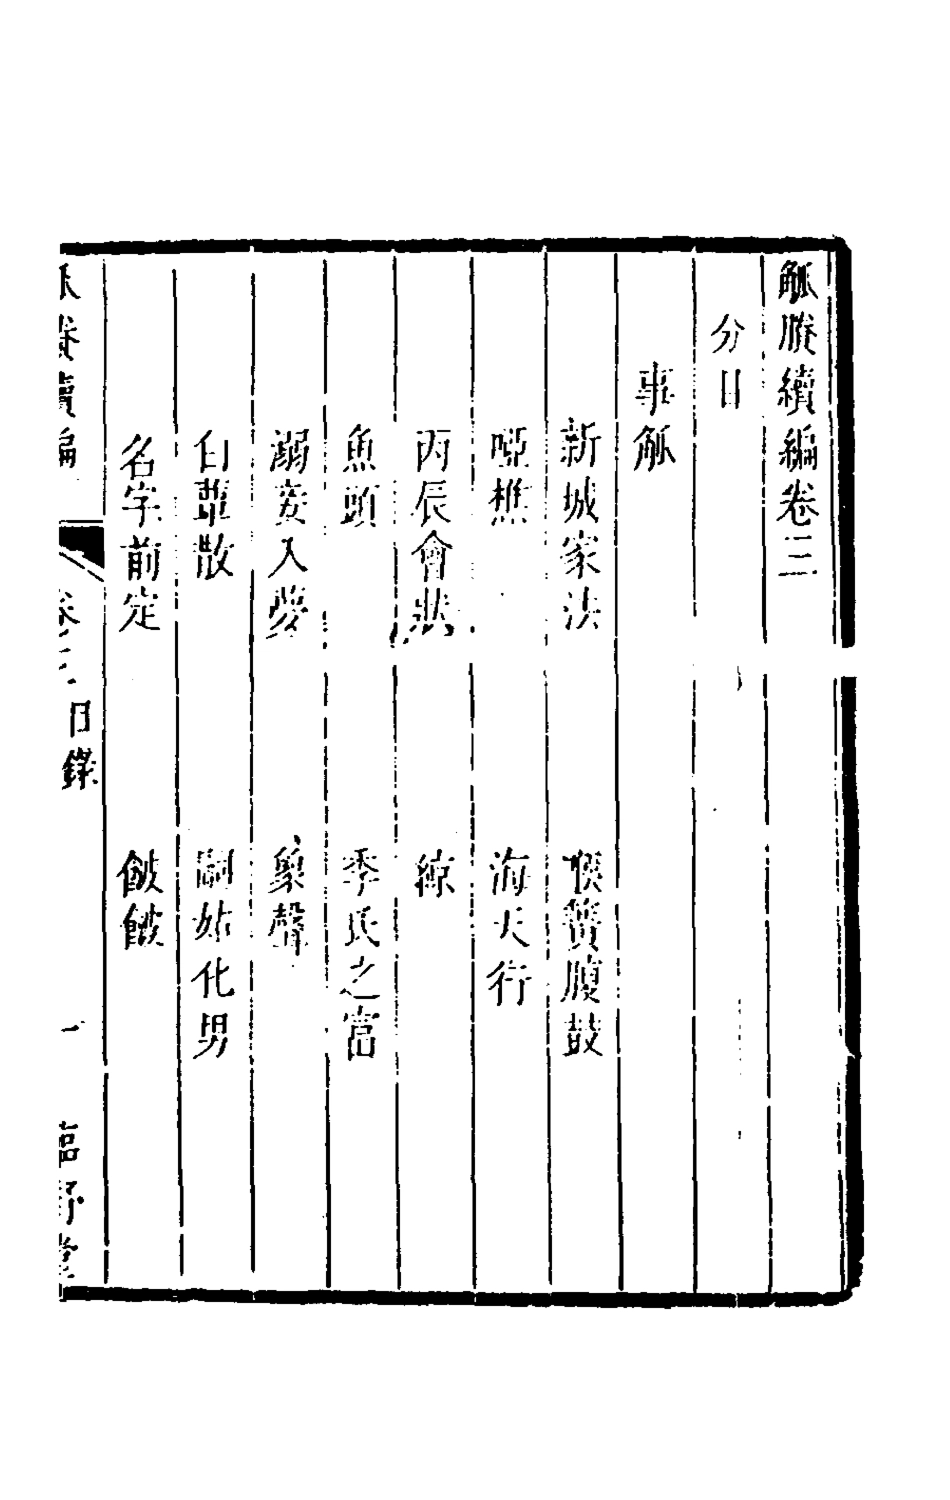 觚賸續編卷三
分目
事觚
新城家法
喉簧腹鼓
啞樵
海天行
丙辰會狀
綜
魚頭
季氏之富
溺妾入夢
象聲
白蕈散
嗣姑化男
名字前定
䬳䬳
觚賸續編
卷三目錄
一
臨野堂